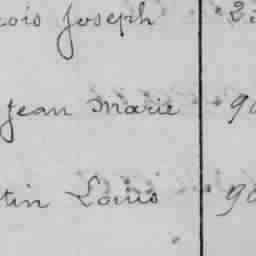 cois Joseph
Jean Marie 90
tin Louis 90